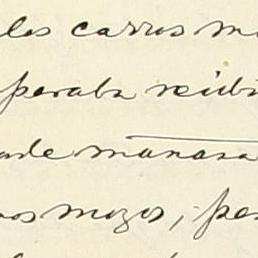 los carros m
peraba recibi
de manana
os mozos, pe